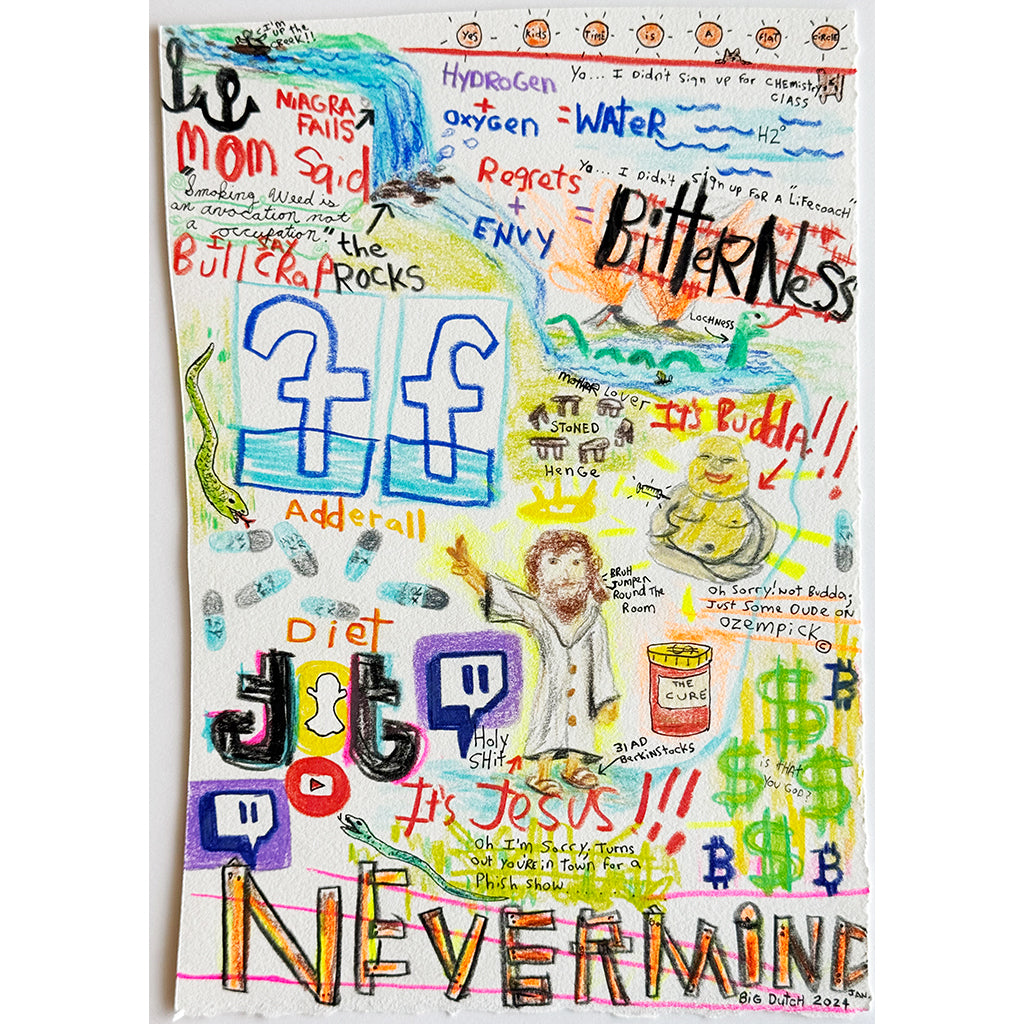 I'm
up the
creek!!
Yes Kids Time is A flat circle
Hydrogen
+
oxygen = WATER
H2°
Yo... I Didn't sign up for CHemistry
CLASS
NiAGRA
FAllS
MOM Said
"Smoking Weed is
an avocation not
a occupation."
I SAY
BullCRAP
the
ROCKS
Regrets
+
ENVY
=
BitterNess
Yo... I Didn't sign up FOR A "Lifecoach"
LOCHNESS
MOTHER Lover
STONED
HenGe
It's Budda!!!
oh Sorry! Not Budda;
Just Some Dude on
OZEMPICK
©
Adderall
Diet
BRUH
Jumpen
Round The
Room
THE
CURE
Holy
SHit
31 AD
BerkinStocks
is tHAT
You GOD?
It's Jesus!!!
Oh I'm Sorry, Turns
out you're in town for a
Phish show......
NEVERMiND
BiG DutcH 2024 JAN.